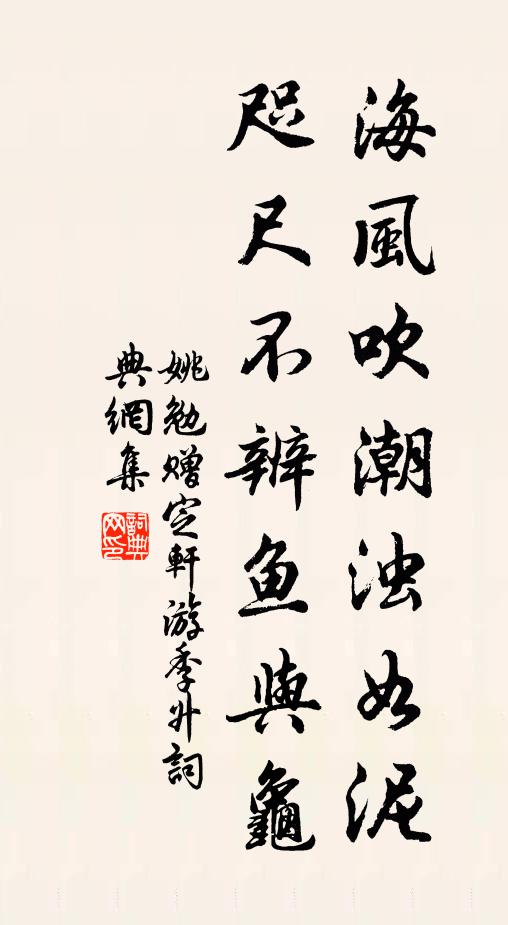 海風吹潮浊如泥
咫尺不辨鱼與龜
姚勉赠定軒游季升詞
典網集
詞典
网印